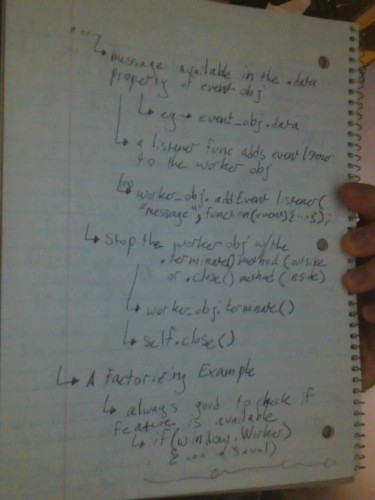 ↳ message available in the .data
property of event obj
↳ eg → event_obj.data
↳ a listener func adds event listener
to the worker obj
↳ eg worker_obj.addEvent listener(
"message", function(event){...});
↳ Stop the worker obj w/the
.terminate() method (outside
or .close() method (inside)
↳ worker_obj.terminate()
↳ self.close()
↳ A Factorizing Example
↳ always good to check if
feature is available
↳ if(window.Worker)
{ ...